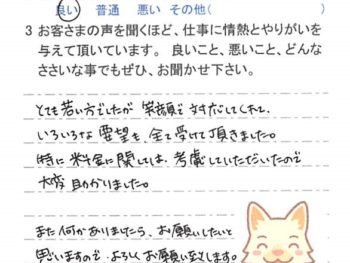 良い 普通 悪い その他( )
3 お客さまの声を聞くほど、仕事に情熱とやりがいを
与えて頂いています。 良いこと、悪いこと、どんな
ささいな事でもぜひ、お聞かせ下さい。
とても若い方でしたが 笑顔で対応してくれて、
いろいろな要望も、全て受けて頂きました。
特に料金に関しては、考慮していただいたので
大変 助かりました。
また 何かありましたら、お願いしたいと
思いますので、よろしくお願い致します。